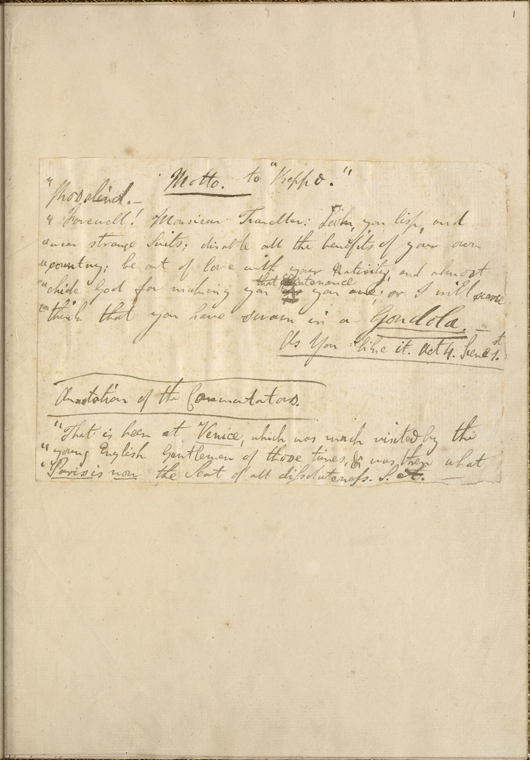 1
Motto. to "Beppo."
"Rosalind. —
" Farewell! Monsieur Traveller: Look, you lisp, and
" wear strange Suits; disable all the benefits of your own
" country; be out of love with your Nativity, and almost
that countenance
" chide God for making you you are; or I will scarce
" think that you have swam in a Gondola. —
As You Like it. Act 4. Scene 1st.
Annotation of the Commentators.
"That is been at Venice, which was much visited by the
" young English Gentlemen of those times, & was then what
" Paris is now the Seat of all dissoluteness. S. A. —